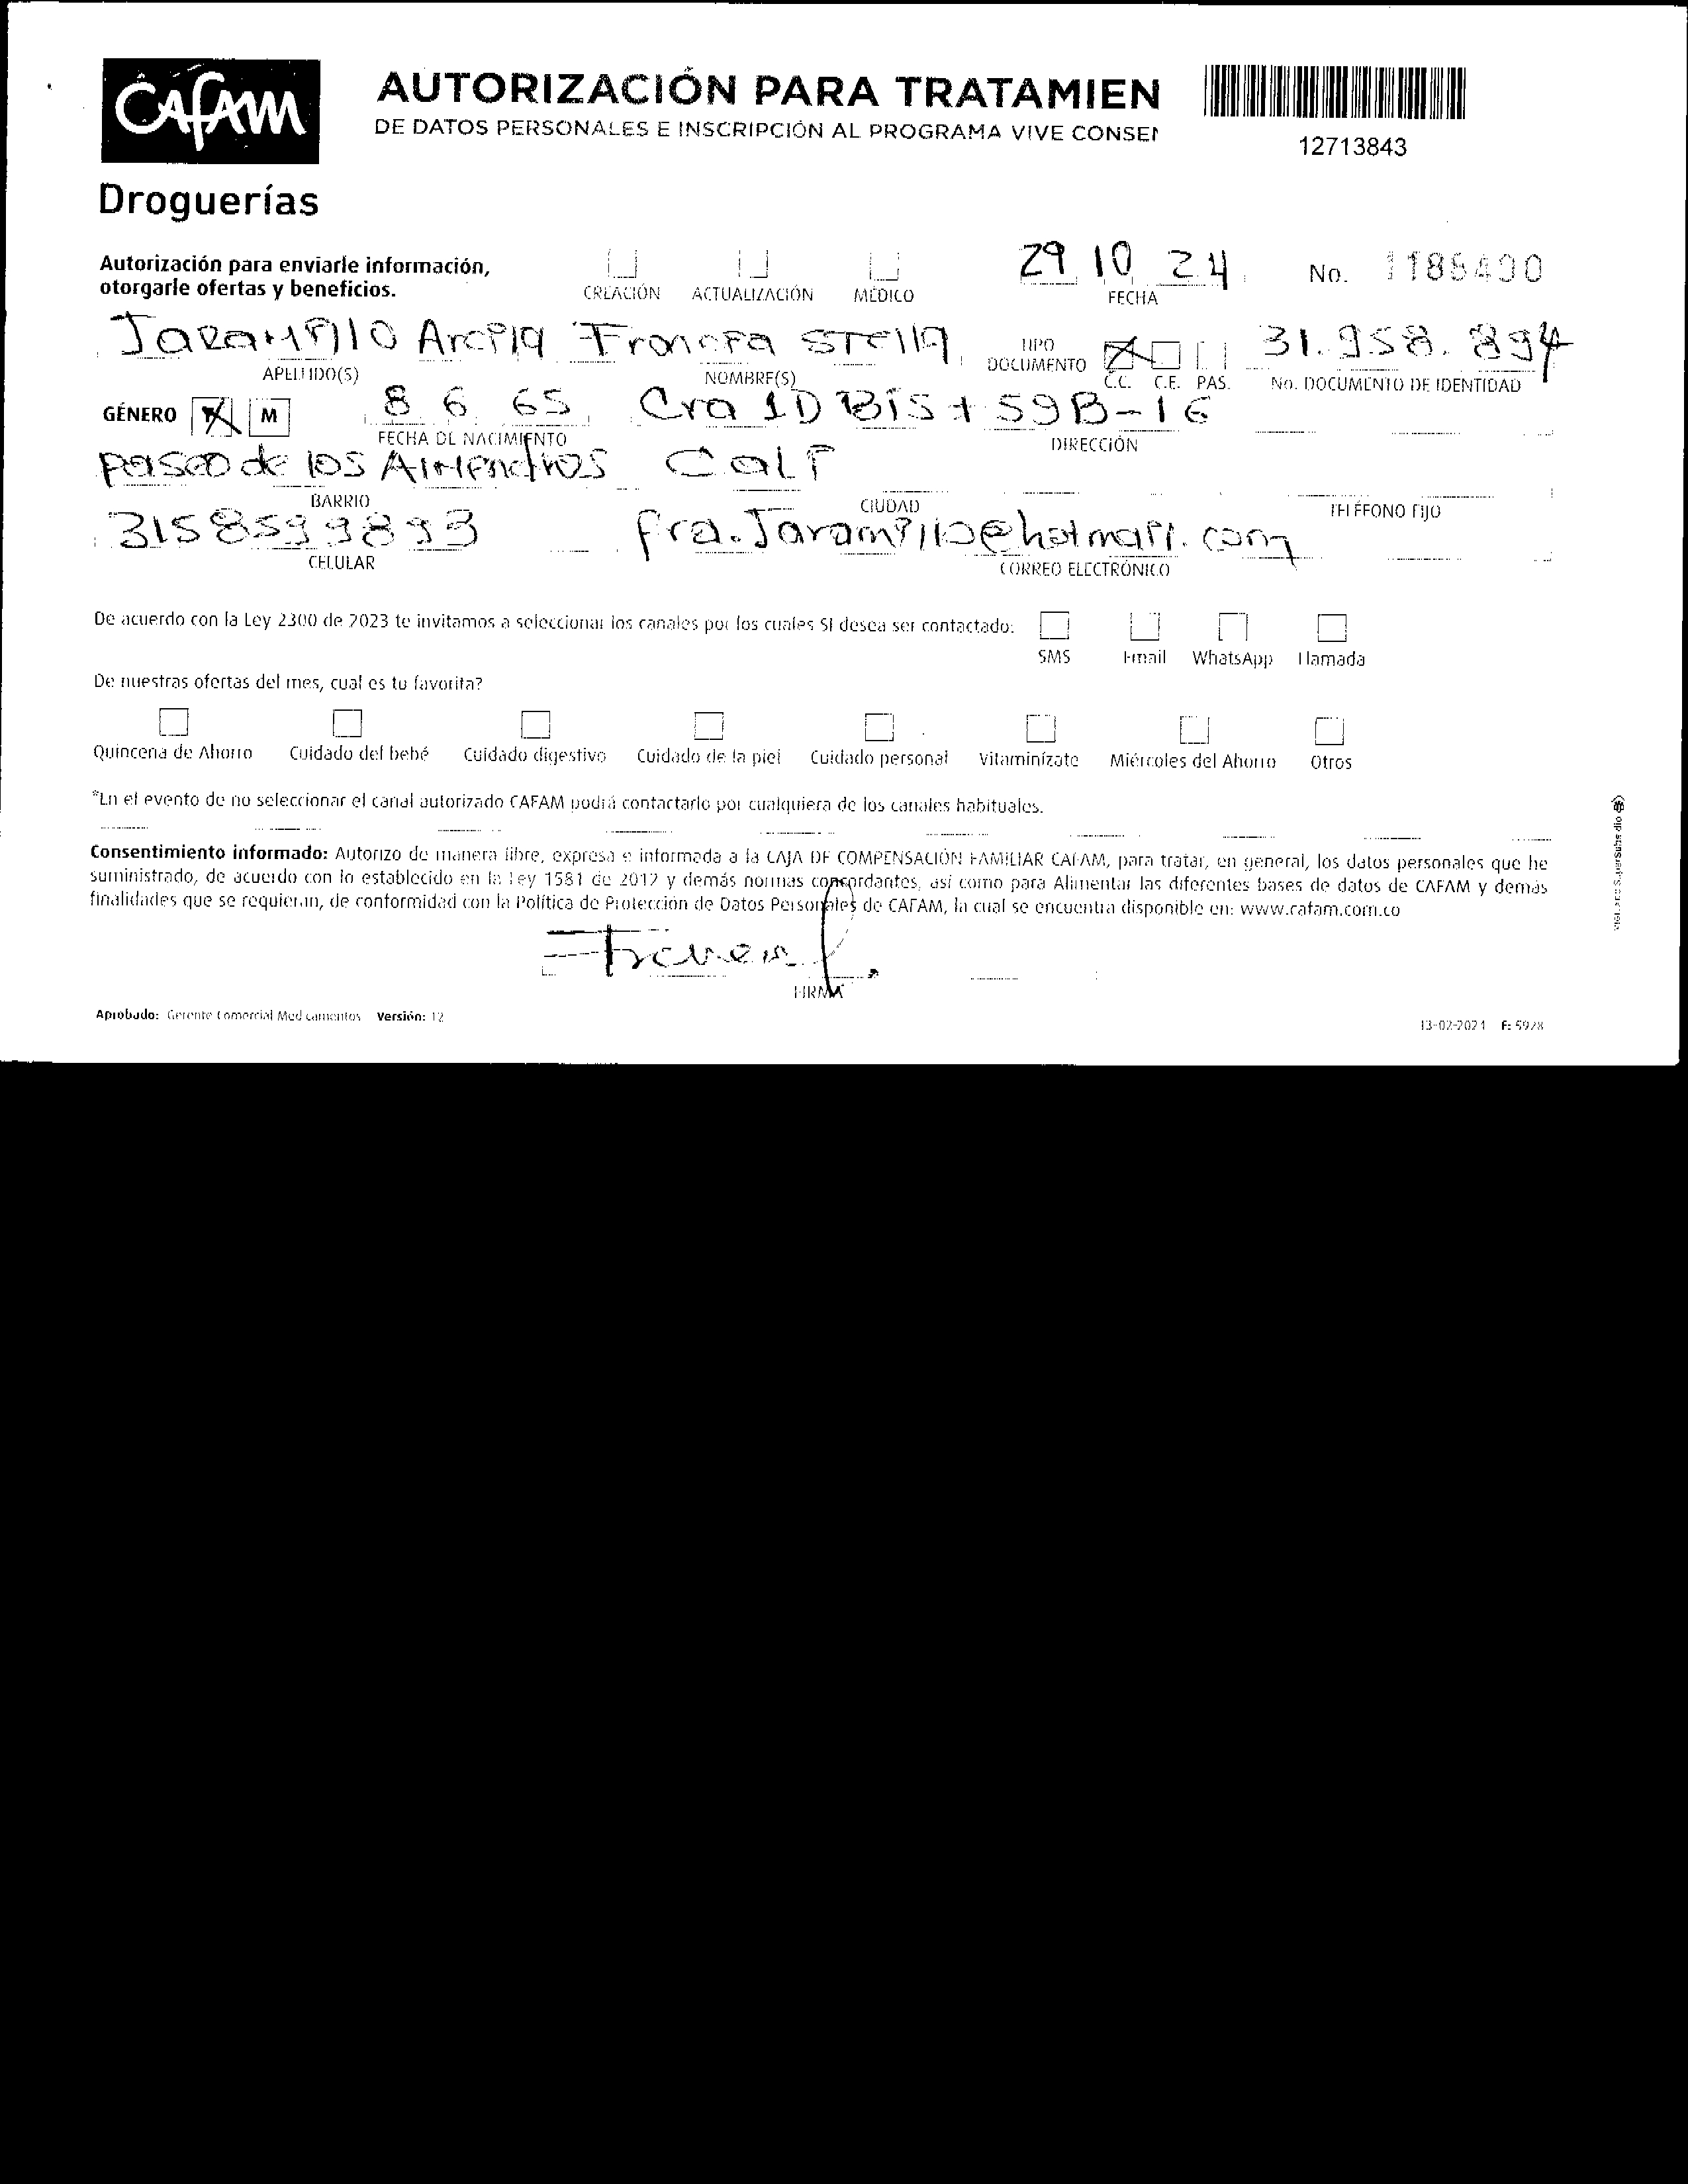 CAFAM
Droguerías
AUTORIZACIÓN PARA TRATAMIEN
DE DATOS PERSONALES E INSCRIPCIÓN AL PROGRAMA VIVE CONSEN
12713843
Autorización para enviarle información,
otorgarle ofertas y beneficios.
CREACIÓN ACTUALIZACIÓN MÉDICO
29 10 24
FECHA
No. 1186400
Jaramillo Arcila Francia Stella
APELLIDO(S) NOMBRE(S)
TIPO DOCUMENTO C.C. C.E. PAS.
31.958.894
No. DOCUMENTO DE IDENTIDAD
GÉNERO F M
8 6 65 Cra 1D Bis + 59B-16
FECHA DE NACIMIENTO DIRECCIÓN
paseo de los Almendros Cali
BARRIO CIUDAD TELÉFONO FIJO
3158599893 fra.Jaramillo@hotmail.com
CELULAR CORREO ELECTRÓNICO
De acuerdo con la Ley 2300 de 2023 te invitamos a seleccionar los canales por los cuales SI desea ser contactado:
SMS Email WhatsApp Llamada
De nuestras ofertas del mes, cual es tu favorita?
Quincena de Ahorro Cuidado del bebé Cuidado digestivo Cuidado de la piel Cuidado personal Vitaminízate Miércoles del Ahorro Otros
*En el evento de no seleccionar el canal autorizado CAFAM podrá contactarlo por cualquiera de los canales habituales.
Consentimiento informado: Autorizo de manera libre, expresa e informada a la CAJA DE COMPENSACIÓN FAMILIAR CAFAM, para tratar, en general, los datos personales que he
suministrado, de acuerdo con lo establecido en la Ley 1581 de 2012 y demás normas concordantes, así como para Alimentar las diferentes bases de datos de CAFAM y demás
finalidades que se requieran, de conformidad con la Política de Protección de Datos Personales de CAFAM, la cual se encuentra disponible en: www.cafam.com.co
FIRMA
Aprobado: Gerente Comercial Medicamentos Versión: 12
F: 5928